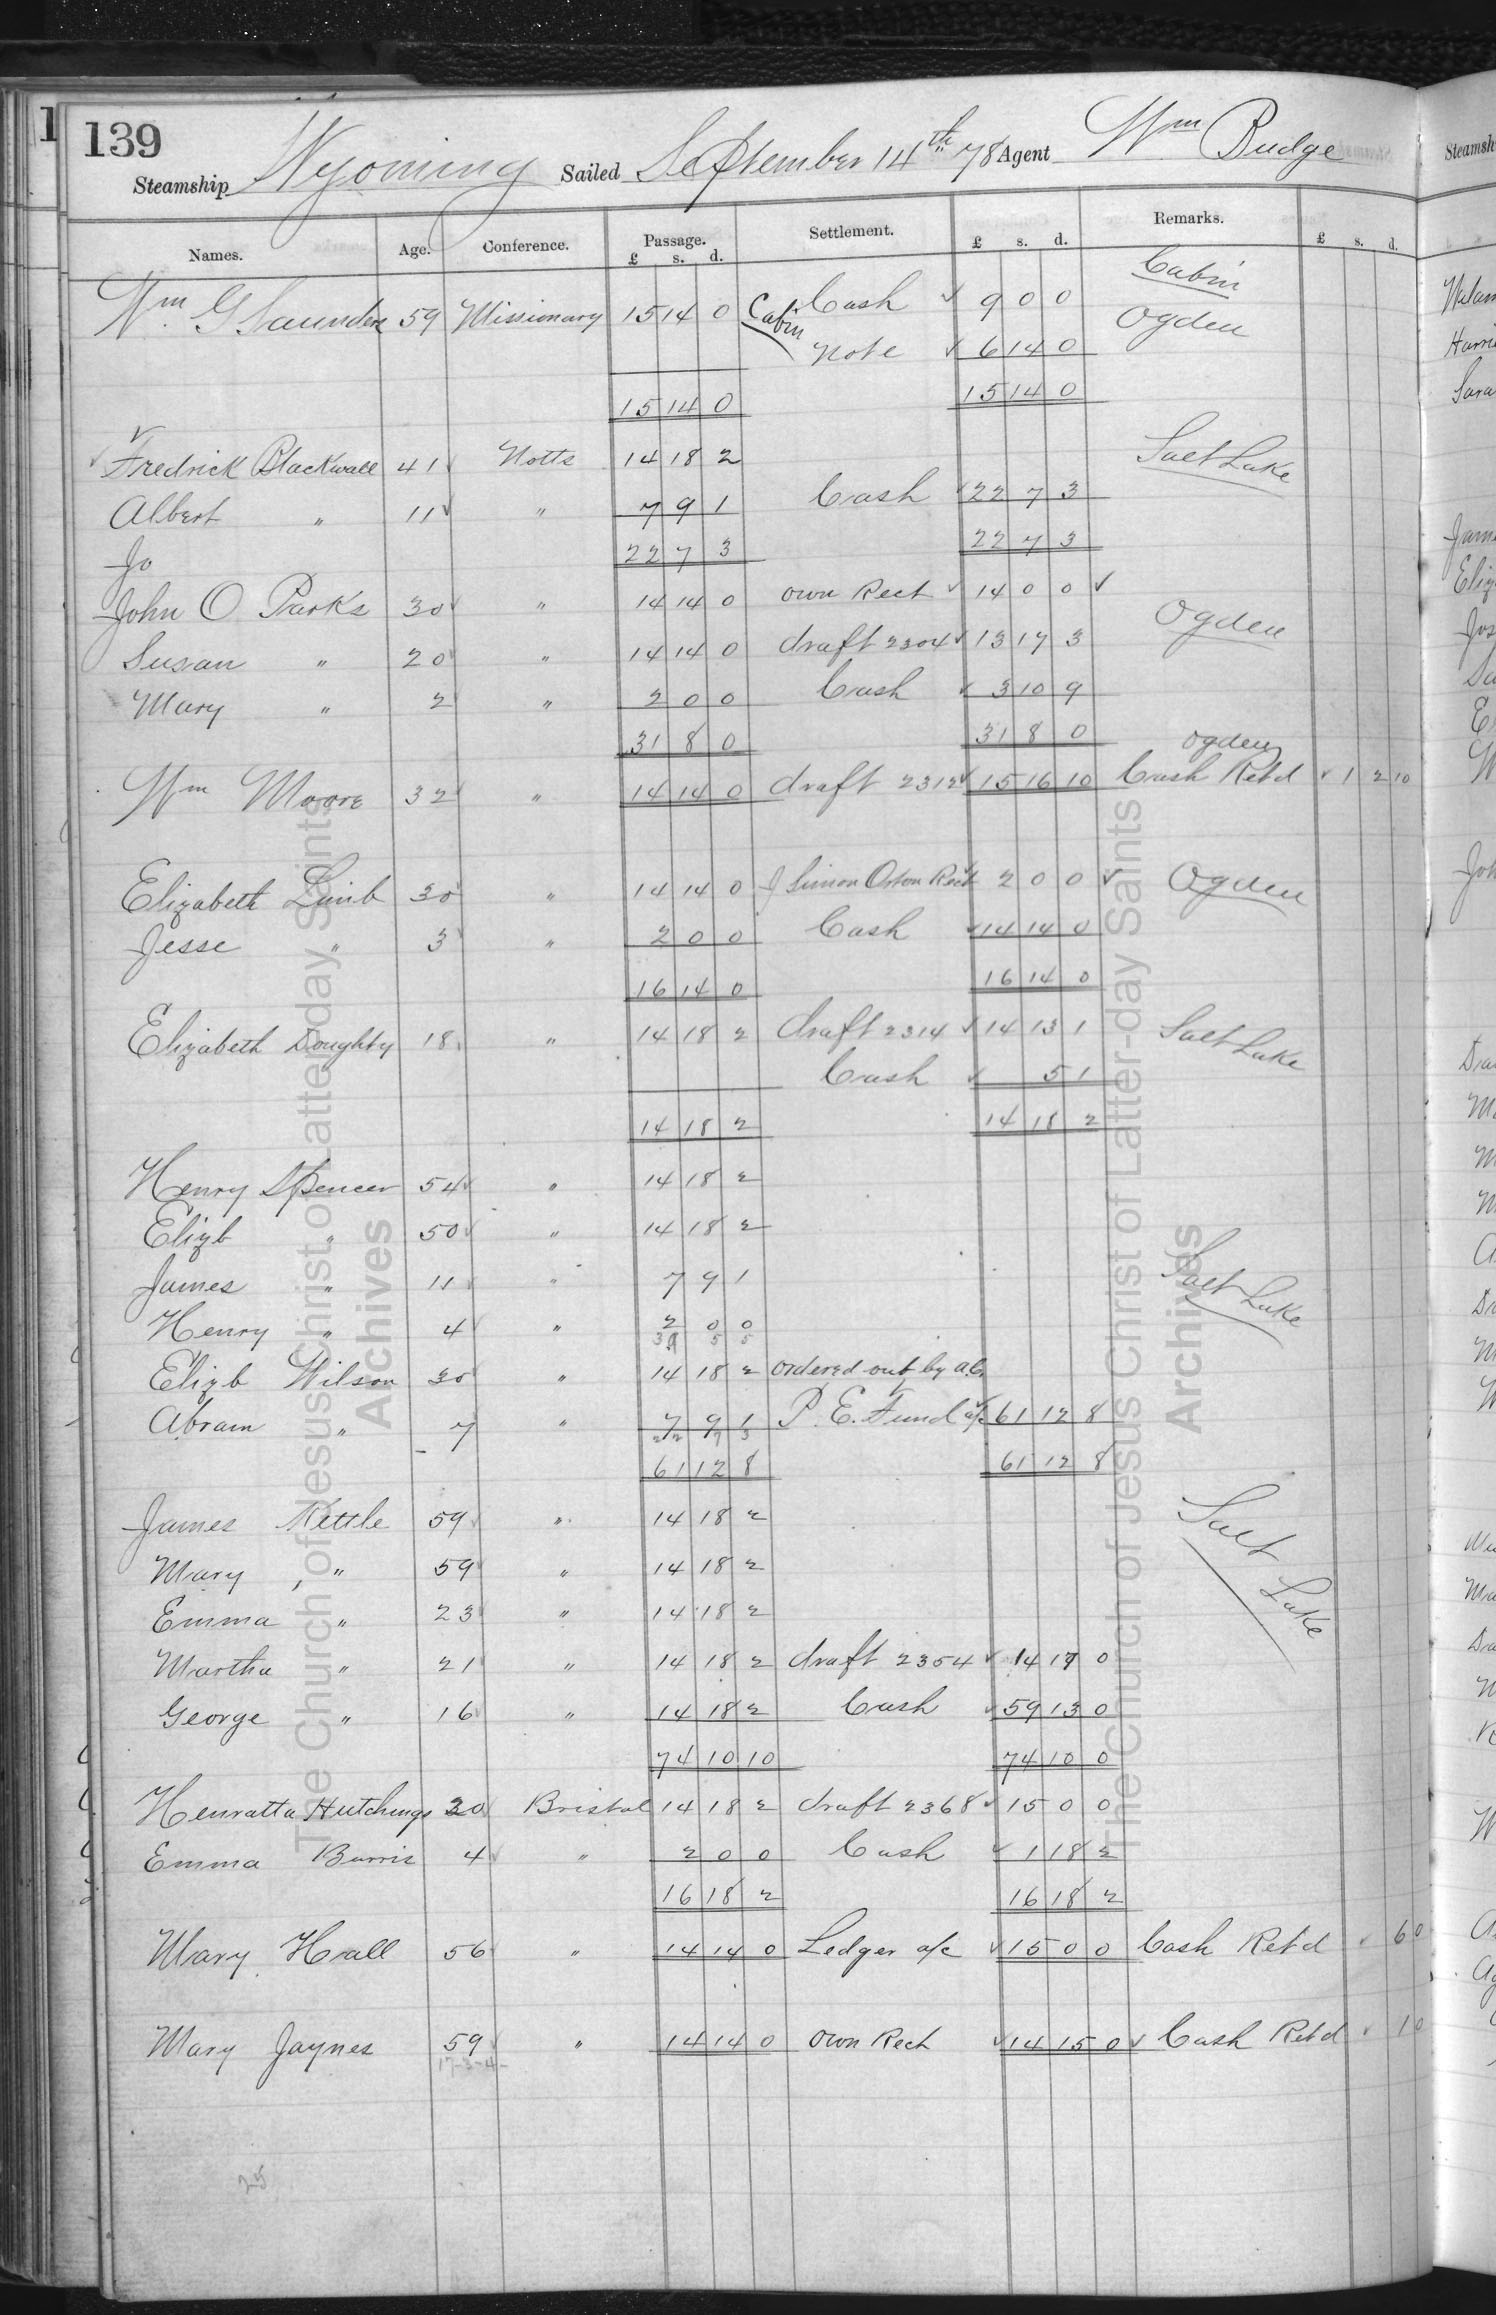 139
Steamship Wyoming Sailed September 14th 78 Agent Wm Budge
Names. Age. Conference. Passage. £ s. d. Settlement. £ s. d. Remarks. £ s. d.
Cabin
Wm. G Saunders 59 Missionary 15 14 0 Cabin Cash 9 0 0 Ogden
Note 6 14 0
15 14 0 15 14 0
Fredrick Blackwall 41 Notts 14 18 2 Salt Lake
Albert " 11 " 7 9 1 Cash 22 7 3
Jo 22 7 3 22 7 3
John O Parks 30 " 14 14 0 own Rect 14 0 0 Ogden
Susan " 20 " 14 14 0 draft 2304 13 17 3
Mary " 2 " 2 0 0 Cash 3 10 9
31 8 0 31 8 0
Ogden
Wm Moore 32 " 14 14 0 draft 2312 15 16 10 Cash Retd 1 2 10
Elizabeth Limb 30 " 14 14 0 J Simon Orton Rect 2 0 0 Ogden
Jesse " 3 " 2 0 0 Cash 14 14 0
16 14 0 16 14 0
Elizabeth Doughty 18 " 14 18 2 draft 2314 14 13 1 Salt Lake
Cash 5 1
14 18 2 14 18 2
Henry Spencer 54 " 14 18 2
Elizb " 50 " 14 18 2
James " 11 " 7 9 1 Salt Lake
Henry " 4 " 2 0 0
39 5 5
Elizb Wilson 30 " 14 18 2 ordered out by
Abram " 7 " 7 9 1 P. E. Fund a/c 61 12 8
22 7 3
61 12 8 61 12 8
James Kettle 59 " 14 18 2 Salt Lake
Mary " 59 " 14 18 2
Emma " 23 " 14 18 2
Martha " 21 " 14 18 2 draft 2354 14 17 0
George " 16 " 14 18 2 Cash 59 13 0
74 10 10 74 10 0
Henratta Hutchings 30 Bristol 14 18 2 draft 2368 15 0 0
Emma Burris 4 " 2 0 0 Cash 1 18 2
16 18 2 16 18 2
Mary Hall 56 " 14 14 0 Ledger a/c 15 0 0 Cash Retd 6 0
Mary Jaynes 59 " 14 14 0 own Rect 14 15 0 Cash Retd 1 0
17-3-4-
25
The Church of Jesus Christ of Latter-day Saints
Archives
The Church of Jesus Christ of Latter-day Saints
Archives